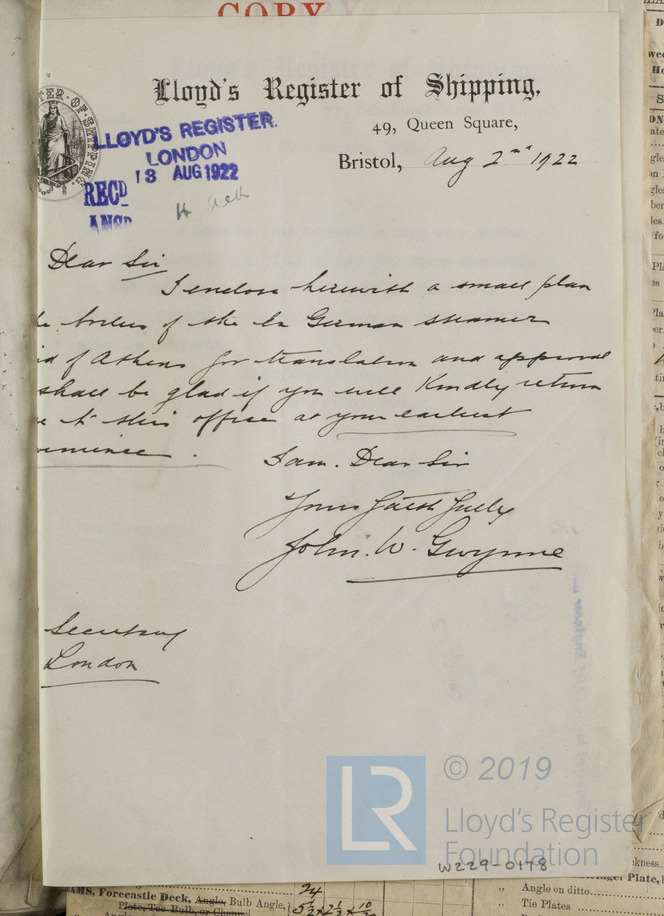 COPY
Lloyd's Register of Shipping,
49, Queen Square,
Bristol, Aug 2nd 1922
LLOYD'S REGISTER.
LONDON
RECD 3 AUG 1922
ANSD
Dear Sir
I enclose herewith a small plan
boilers of the Ex German steamer
of Athens for translation and approval
shall be glad if you will Kindly return
to this office at your earliest
I am. Dear Sir
Yours faithfully
John. W. Gwynne
Secretary
London
© 2019
LR
Lloyd's Register
Foundation
W229-0178
MS, Forecastle Deck, Angle, Bulb Angle,
Plate, Tee Bulb, or Channel
24
" Angle on ditto
" Tie Plates